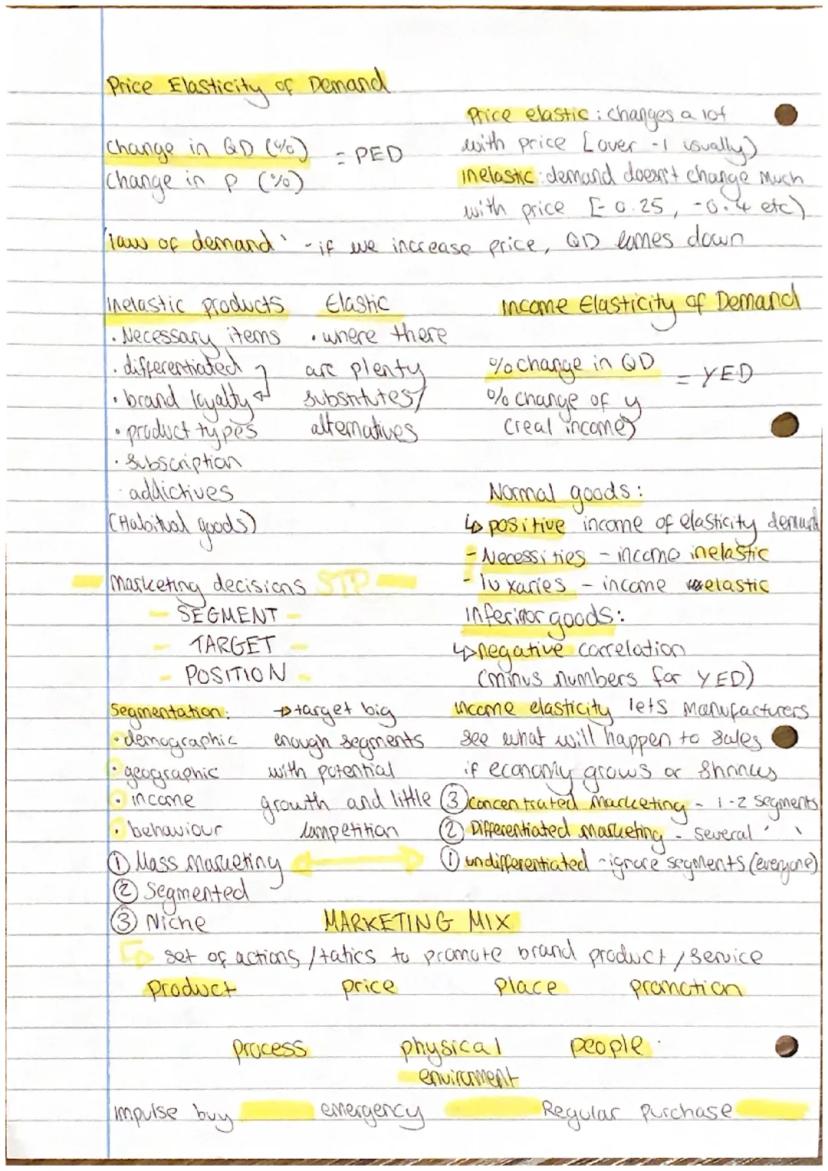 Price Elasticity of Demand
Change in QD (%) = PED
Change in P (%)
Price elastic : changes a lot
with price [over -1 usually)
inelastic : demand doesn't change much
with price [-0.25, -0.4 etc)
'law of demand' - if we increase price, QD comes down
Inelastic products
· Necessary items
· differentiated
· brand loyalty
· product types
· subscription
· addictives
(Habitual goods)
Elastic
· where there
are plenty
substitutes/
alternatives
Income Elasticity of Demand
% change in QD = YED
% change of y
(real income)
Normal goods:
↳ positive income of elasticity demand
- Necessities - income inelastic
- luxaries - income elastic
Inferior goods:
↳ negative correlation
(minus numbers for YED)
income elasticity lets manufacturers
see what will happen to sales
if economy grows or shrinks
Marketing decisions STP
- SEGMENT -
- TARGET -
- POSITION -
Segmentation:
· demographic
· geographic
· income
· behaviour
→ target big
enough segments
with potential
growth and little
competition
① Mass marketing
② Segmented
③ Niche
③ concentrated marketing - 1-2 segments
② Differentiated marketing - several ' '
① undifferentiated - ignore segments (everyone)
MARKETING MIX
↳ set of actions/tatics to promote brand product/service
product price place promotion
process physical environment people
impulse buy emergency Regular purchase